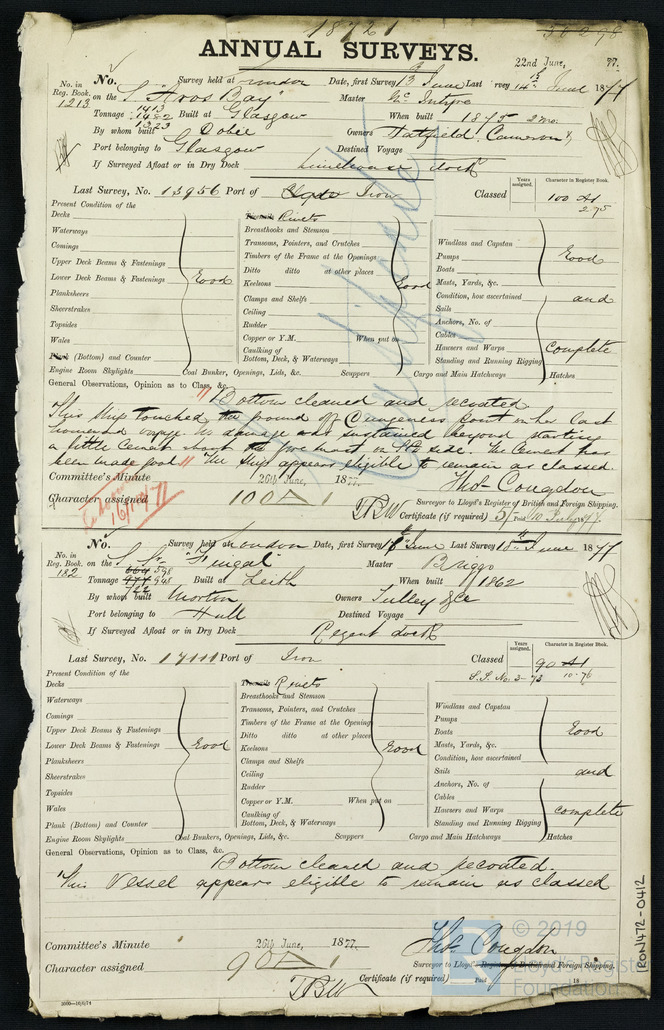 18721
56298
ANNUAL SURVEYS.
22nd June, 77.
No. in Reg. Book. 1213
No. Survey held at London Date, first Survey 13 June Last Survey 14th June 1877
on the S "Aros Bay" Master McIntyre
Tonnage 1413 1482 1323 Built at Glasgow When built 1875 2mo.
By whom built Dobie Owners Hatfield, Cameron &
Port belonging to Glasgow Destined Voyage
If Surveyed Afloat or in Dry Dock Limehouse dock
Last Survey, No. 13956 Port of Clyde Iron Classed
Years assigned.
Character in Register Book.
100 A1
2.75
Present Condition of the
Decks
Waterways
Comings
Upper Deck Beams & Fastenings
Lower Deck Beams & Fastenings Good
Planksheers
Sheerstrakes
Topsides
Wales
Plank (Bottom) and Counter
Engine Room Skylights
Treenails Rivets
Breasthooks and Stemson
Transoms, Pointers, and Crutches
Timbers of the Frame at the Openings
Ditto ditto at other places
Keelsons Good
Clamps and Shelfs
Ceiling
Rudder
Copper or Y.M. When put on
Caulking of Bottom, Deck, & Waterways
Coal Bunker, Openings, Lids, &c. Scuppers
Windlass and Capstan
Pumps Good
Boats
Masts, Yards, &c.
Condition, how ascertained and
Sails
Anchors, No. of
Cables
Hawsers and Warps Complete
Standing and Running Rigging
Cargo and Main Hatchways Hatches
General Observations, Opinion as to Class, &c.
Bottom cleaned and recoated
This Ship touched the ground off Dungeness Point on her last
homeward voyage no damage was sustained beyond starting
a little Cement abaft the fore mast on Pt side. The Cement has
been made good. The Ship appears eligible to remain as classed
Committee's Minute 26th June, 1877.
Thos Congdon
Character assigned 100A1
Surveyor to Lloyd's Register of British and Foreign Shipping.
TBW
Certificate (if required) 5/
16/10/77
No. in Reg. Book. 182
No. Survey held at London Date, first Survey 16th June Last Survey 18th June 1877
on the S Sr "Fingal" Master Briggs
Tonnage Built at Leith When built 1862
By whom built Morton Owners Tulley & Co
Port belonging to Hull Destined Voyage
If Surveyed Afloat or in Dry Dock Regent dock
Last Survey, No. 17111 Port of Iron Classed
Years assigned.
Character in Register Book.
90 A1
S.S. No. 2-73 10.76
Present Condition of the
Decks
Waterways
Comings
Upper Deck Beams & Fastenings
Lower Deck Beams & Fastenings Good
Planksheers
Sheerstrakes
Topsides
Wales
Plank (Bottom) and Counter
Engine Room Skylights
Treenails Rivets
Breasthooks and Stemson
Transoms, Pointers, and Crutches
Timbers of the Frame at the Opening
Ditto ditto at other places
Keelsons Good
Clamps and Shelfs
Ceiling
Rudder
Copper or Y.M. When put on
Caulking of Bottom, Deck, & Waterways
Coal Bunkers, Openings, Lids, &c. Scuppers
Windlass and Capstan
Pumps
Boats Good
Masts, Yards, &c.
Condition, how ascertained
Sails and
Anchors, No. of
Cables
Hawsers and Warps complete
Standing and Running Rigging
Cargo and Main Hatchways Hatches
General Observations, Opinion as to Class, &c.
Bottom cleaned and recoated
This Vessel appears eligible to remain as classed
Committee's Minute 26th June, 1877.
Thos Congdon
Character assigned 90A1
Surveyor to Lloyd's Register of British and Foreign Shipping.
TBW
Certificate (if required) Paid 18
RON1472-0412
© 2019
Lloyd's Register
Foundation